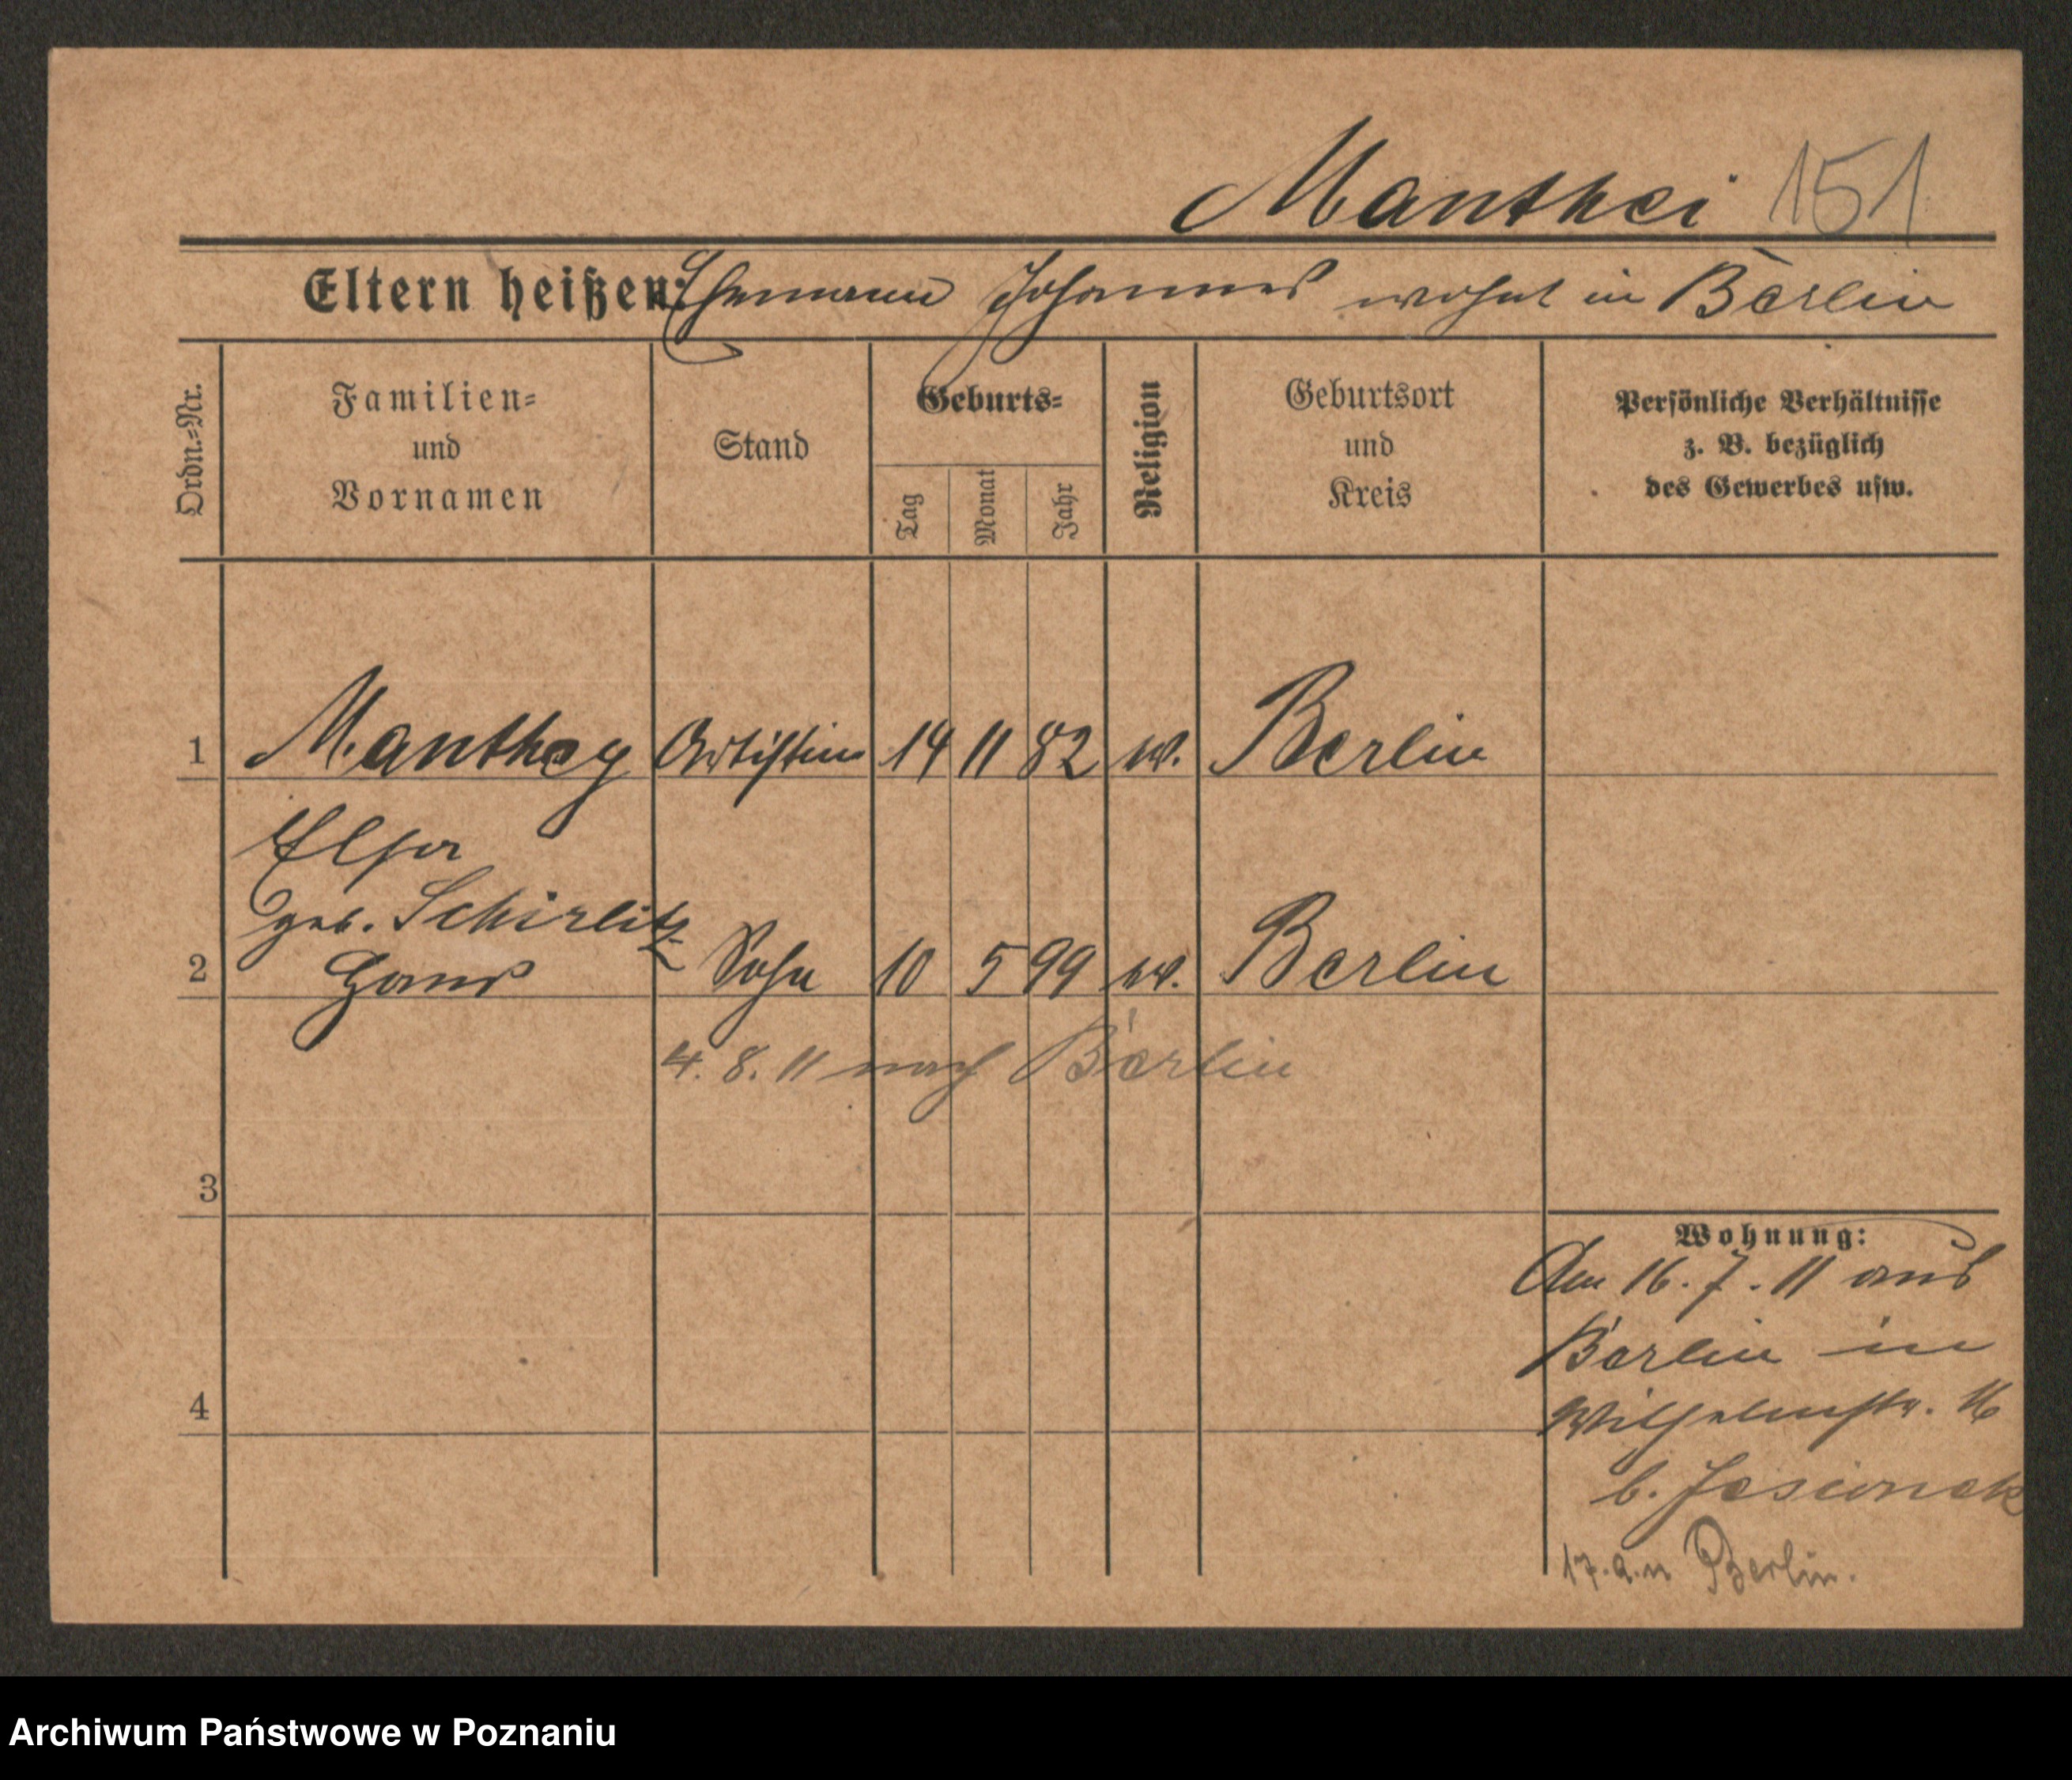 Manthei 151
Eltern heißen: Ehemann Johannes wohnt in Berlin
Ordn.=Nr.
Familien=
und
Vornamen
Stand
Geburts=
Tag
Monat
Jahr
Religion
Geburtsort
und
Kreis
Persönliche Verhältnisse
z. B. bezüglich
des Gewerbes usw.
1 Manthey Artistin 14 11 82 ev. Berlin
Elsa
geb. Schirlitz
2 Hans Sohn 10 5 99 ev. Berlin
4. 8. 11 nach Berlin
3
Wohnung:
Am 16. 7. 11 aus
Berlin in
4
Wilhelmstr. 16
b. Jesionek
Berlin.
Archiwum Państwowe w Poznaniu